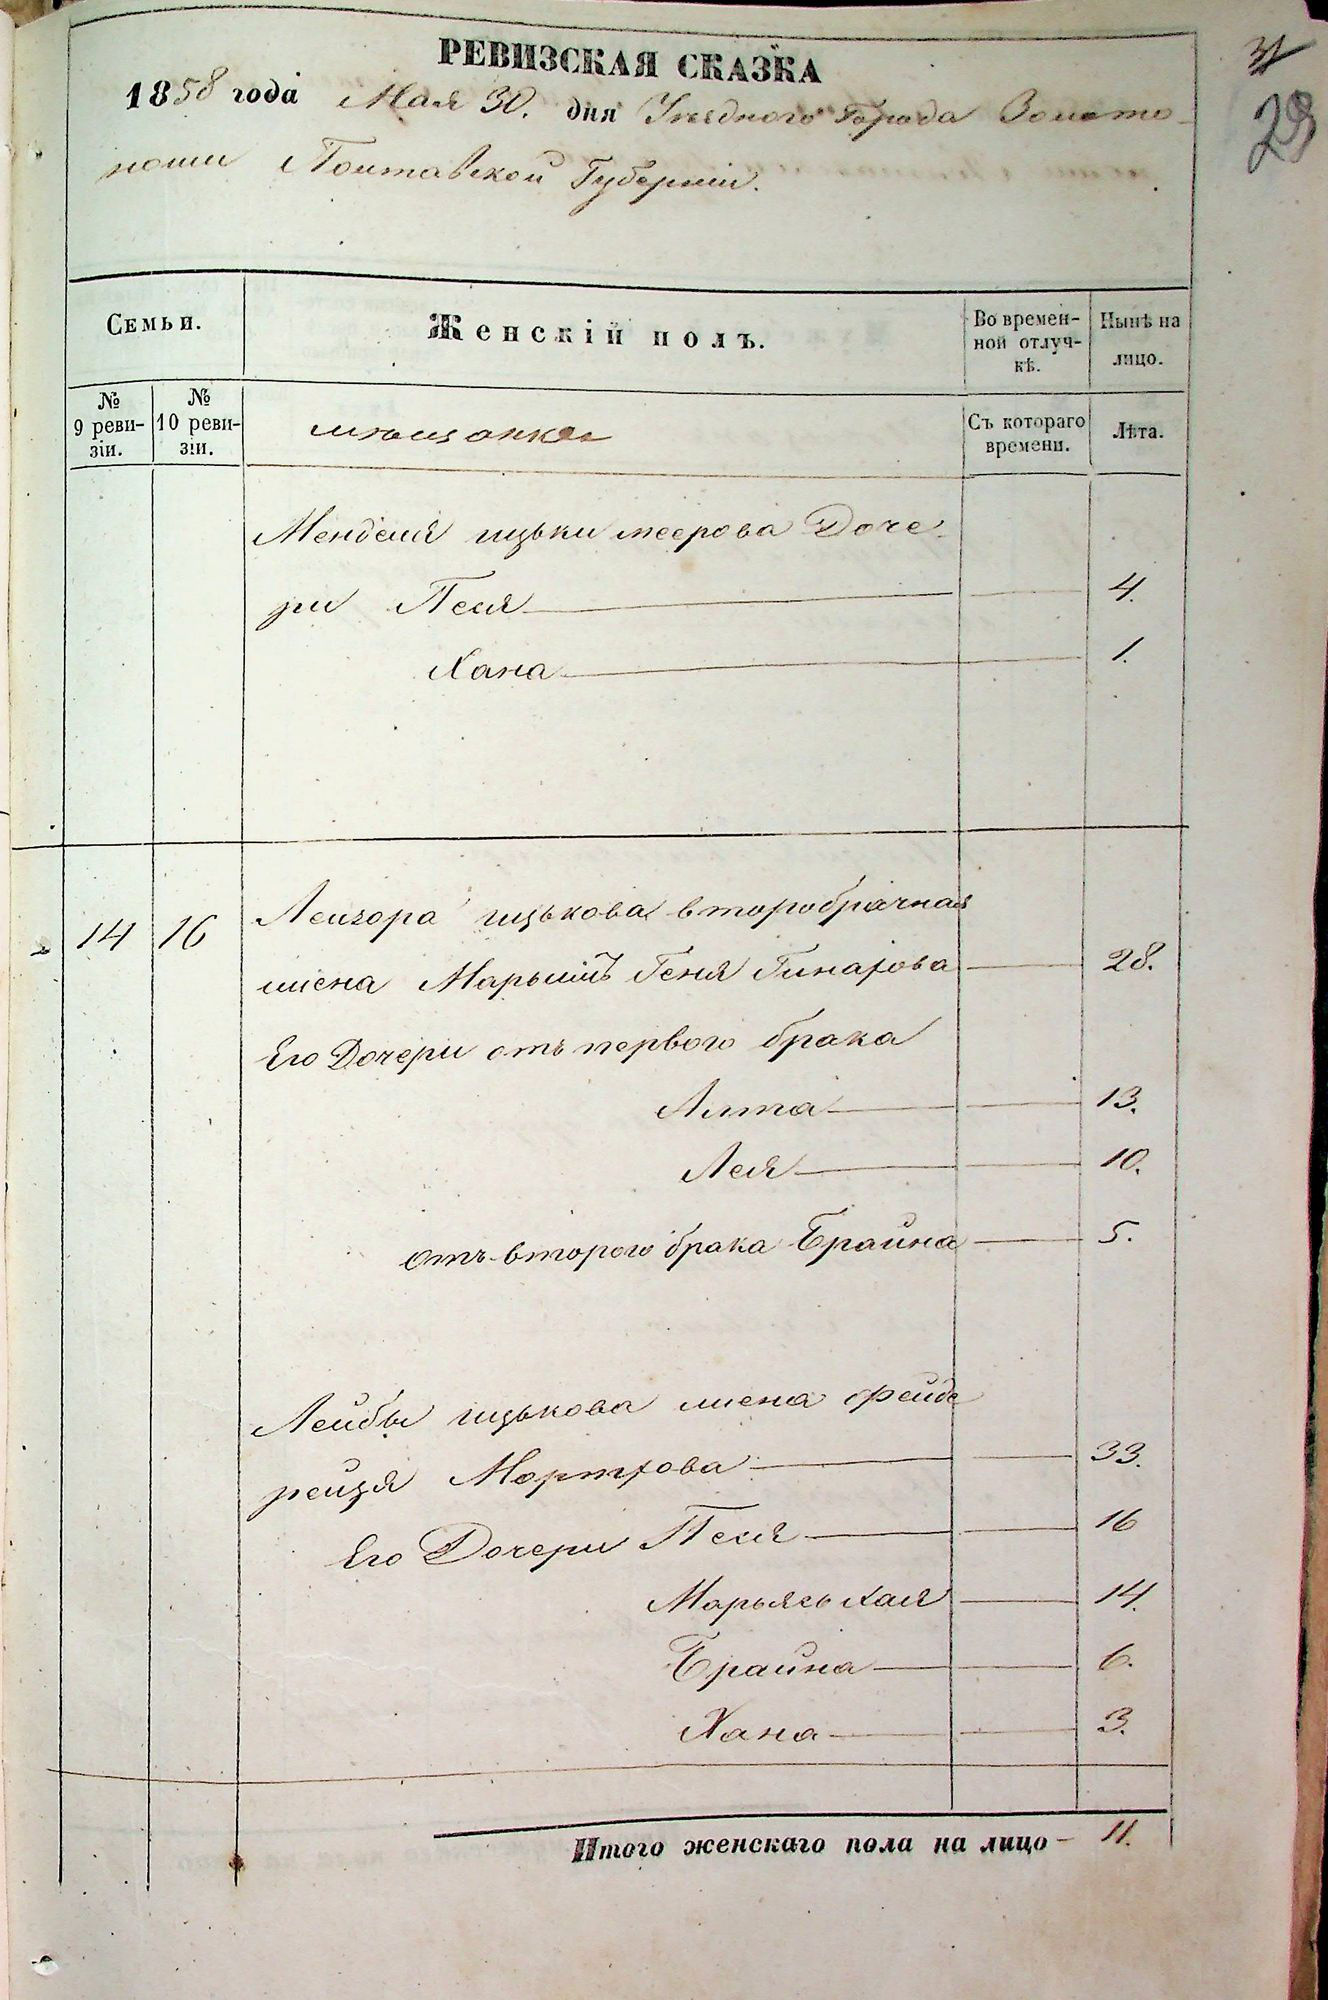 РЕВИЗСКАЯ СКАЗКА
31
29
1858 года Мая 30. дня Уѣзднаго Города Золото-
ноши Полтавской Губерніи.
Семьи.
Женскій полъ.
Во времен-
ной отлуч-
кѣ.
Нынѣ на
лицо.
№
9 реви-
зіи.
№
10 реви-
зіи.
мѣщанки
Съ котораго
времени.
Лѣта.
Менделя ицьки меерова Доче-
ри Песя 4.
Хана 1.
14 16 Лейзора ицькова второбрачная
жена Марьяш Геня 28.
Его Дочери отъ первого брака
Алта 13.
Лея 10.
отъ второго брака Брайна 5.
Лейбы ицькова жена фейде
рейзя Мортхова 33.
Его Дочери Песя 16
Марьясь хая 14.
Брайна 6.
Хана 3.
Итого женскаго пола на лицо - 11.